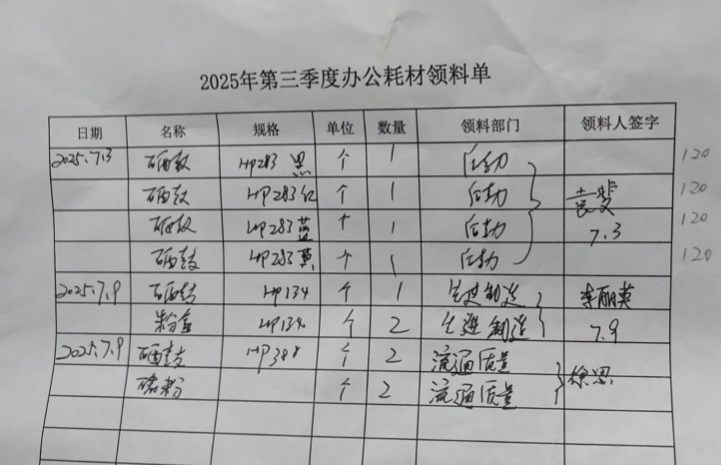 2025年第三季度办公耗材领料单
日期 名称 规格 单位 数量 领料部门 领料人签字
2025.7.3 硒鼓 HP283 黑 个 1 120
硒鼓 HP283红 个 1 120
硒鼓 HP283蓝 个 1 7.3 120
硒鼓 HP283黄 个 1 120
2025.7.9 硒鼓 HP134 个 1 先进制造 李丽英
粉盒 个 2 先进制造 7.9
2025.7.9 硒鼓 HP388 个 2 流通质量
个 2 流通质量 徐恩